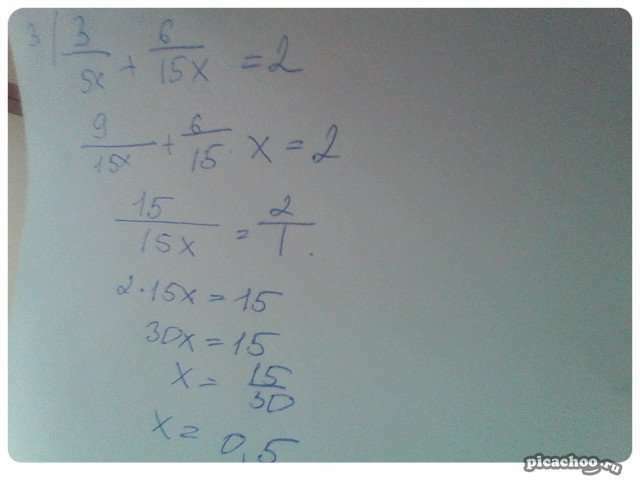 3| 3/5x + 6/15x = 2
9/15x + 6/15 · x = 2
15/15x = 2/1.
2·15x = 15
30x = 15
x = 15/30
x = 0,5
picachoo.ru